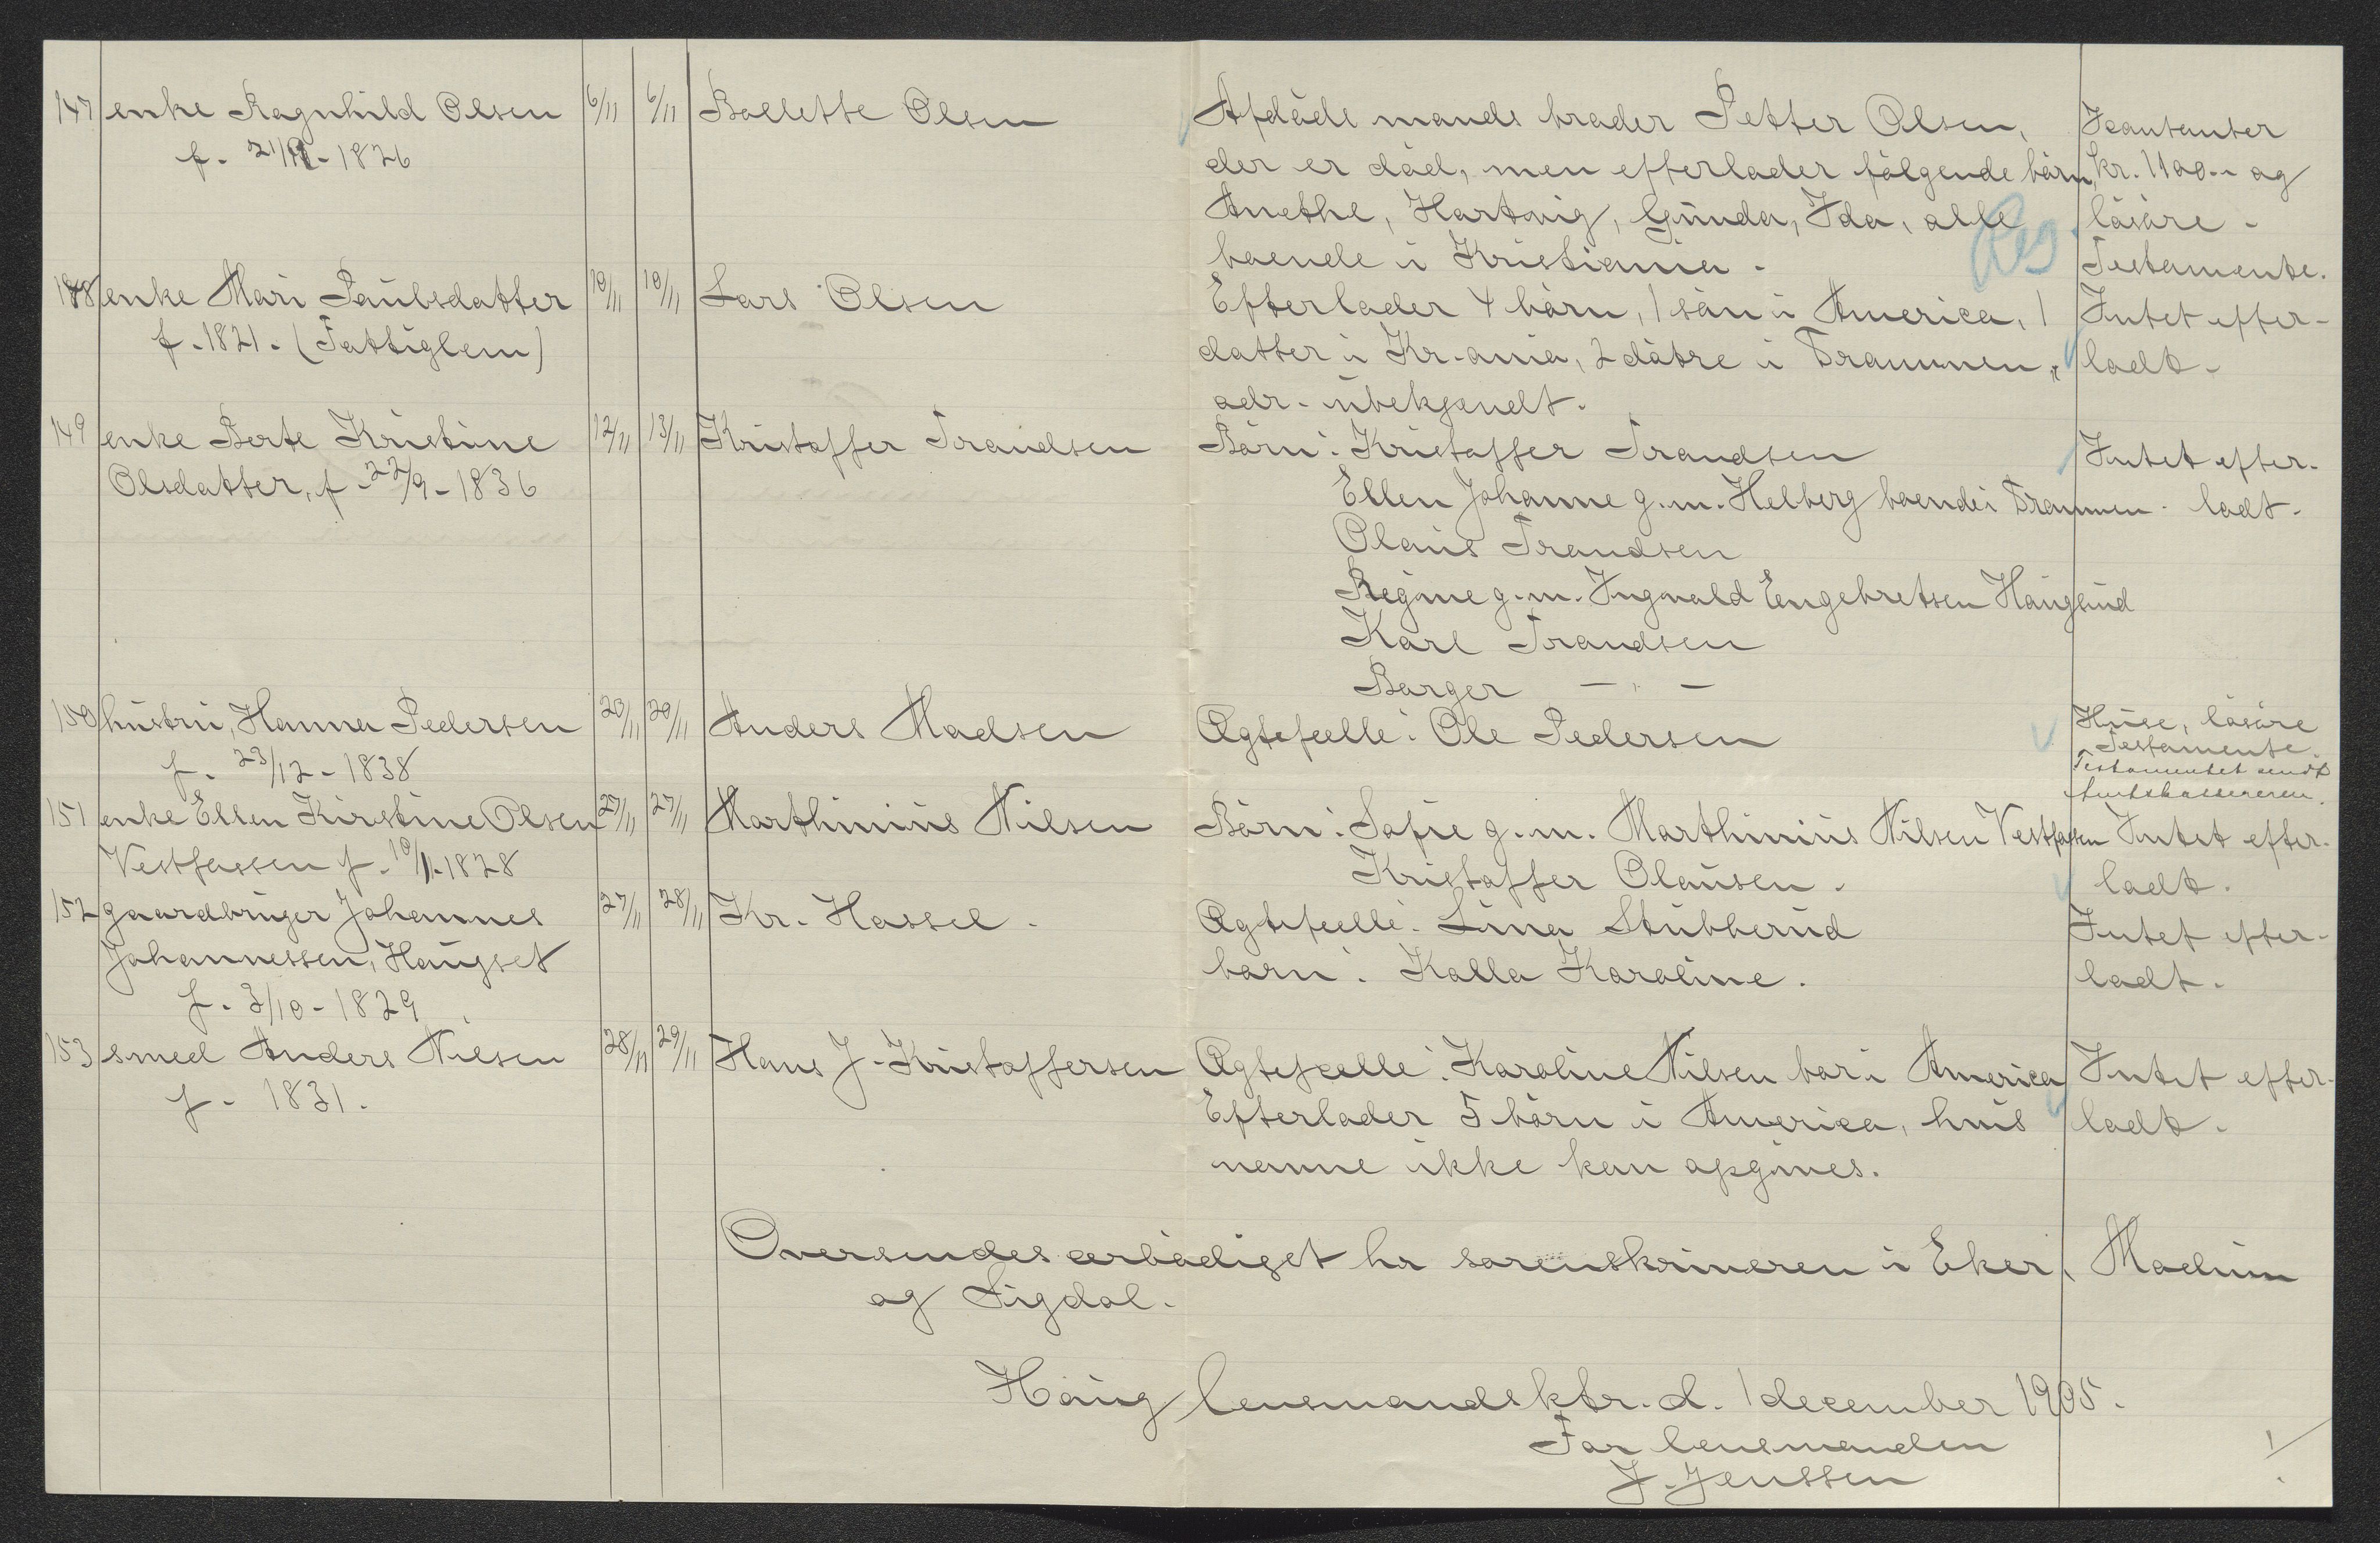 147 enke Ragnhild Olsen 6/11 6/11 Bollette Olsen Afdøde mands broder Petter Olsen, Kontanter
f. 21/11-1826 der er død, men efterlader følgende børn, kr. 1100.- og
Anethe, Hartvig, Gunda, Ida, alle løsøre -
boende i Kristiania - Testamente.
148 enke Mari Paulsdatter 10/11 10/11 Lars Olsen Efterlader 4 børn, 1 søn i America, 1 Intet efter-
f. 1821. (Fattiglem) datter i Kr.ania, 2 døtre i Drammen, ladt.
adr. ubekjendt.
149 enke Berte Kristine 12/11 13/11 Kristoffer Trandsen Børn: Kristoffer Trandsen Intet efter-
Olsdatter, f. 22/9-1836 Ellen Johanne g.m. Helberg boende i Drammen. ladt.
Olaus Trandsen
Regine g.m. Ingvald Engebretsen Hauglund
Karl Trandsen
Borger — " —
150 hustru, Hanna Pedersen 20/11 20/11 Anders Madsen Ægtefælle: Ole Pedersen Huse, løsøre
f. 23/12-1838 Testamente.
Testamentet sendt
151 enke Ellen Kirstine Olsen 27/11 27/11 Marthinius Nilsen Børn: Sofie g.m. Marthinius Nilsen Vestfossen Intet efter-
Vestfossen f. 10/11-1828 Kristoffer Olausen. ladt.
152 gaardbruger Johannes 27/11 28/11 Kr. Hassel. Ægtefælle: Lina Stubberud Intet efter-
Johannessen, Haugset barn: Kalla Karoline. ladt.
f. 3/10-1829
153 smed Anders Nilsen 28/11 29/11 Hans J. Kristoffersen Ægtefælle: Karoline Nilsen bor i America Intet efter-
f. 1831. Efterlader 5 børn i America, hvis ladt.
navne ikke kan opgives.
Oversendes ærbødigst hr sorenskriveren i Eker, Modum
og Sigdal.
Haug lensmandsktr. d. 1 december 1905.
For lensmanden
J. Jenssen